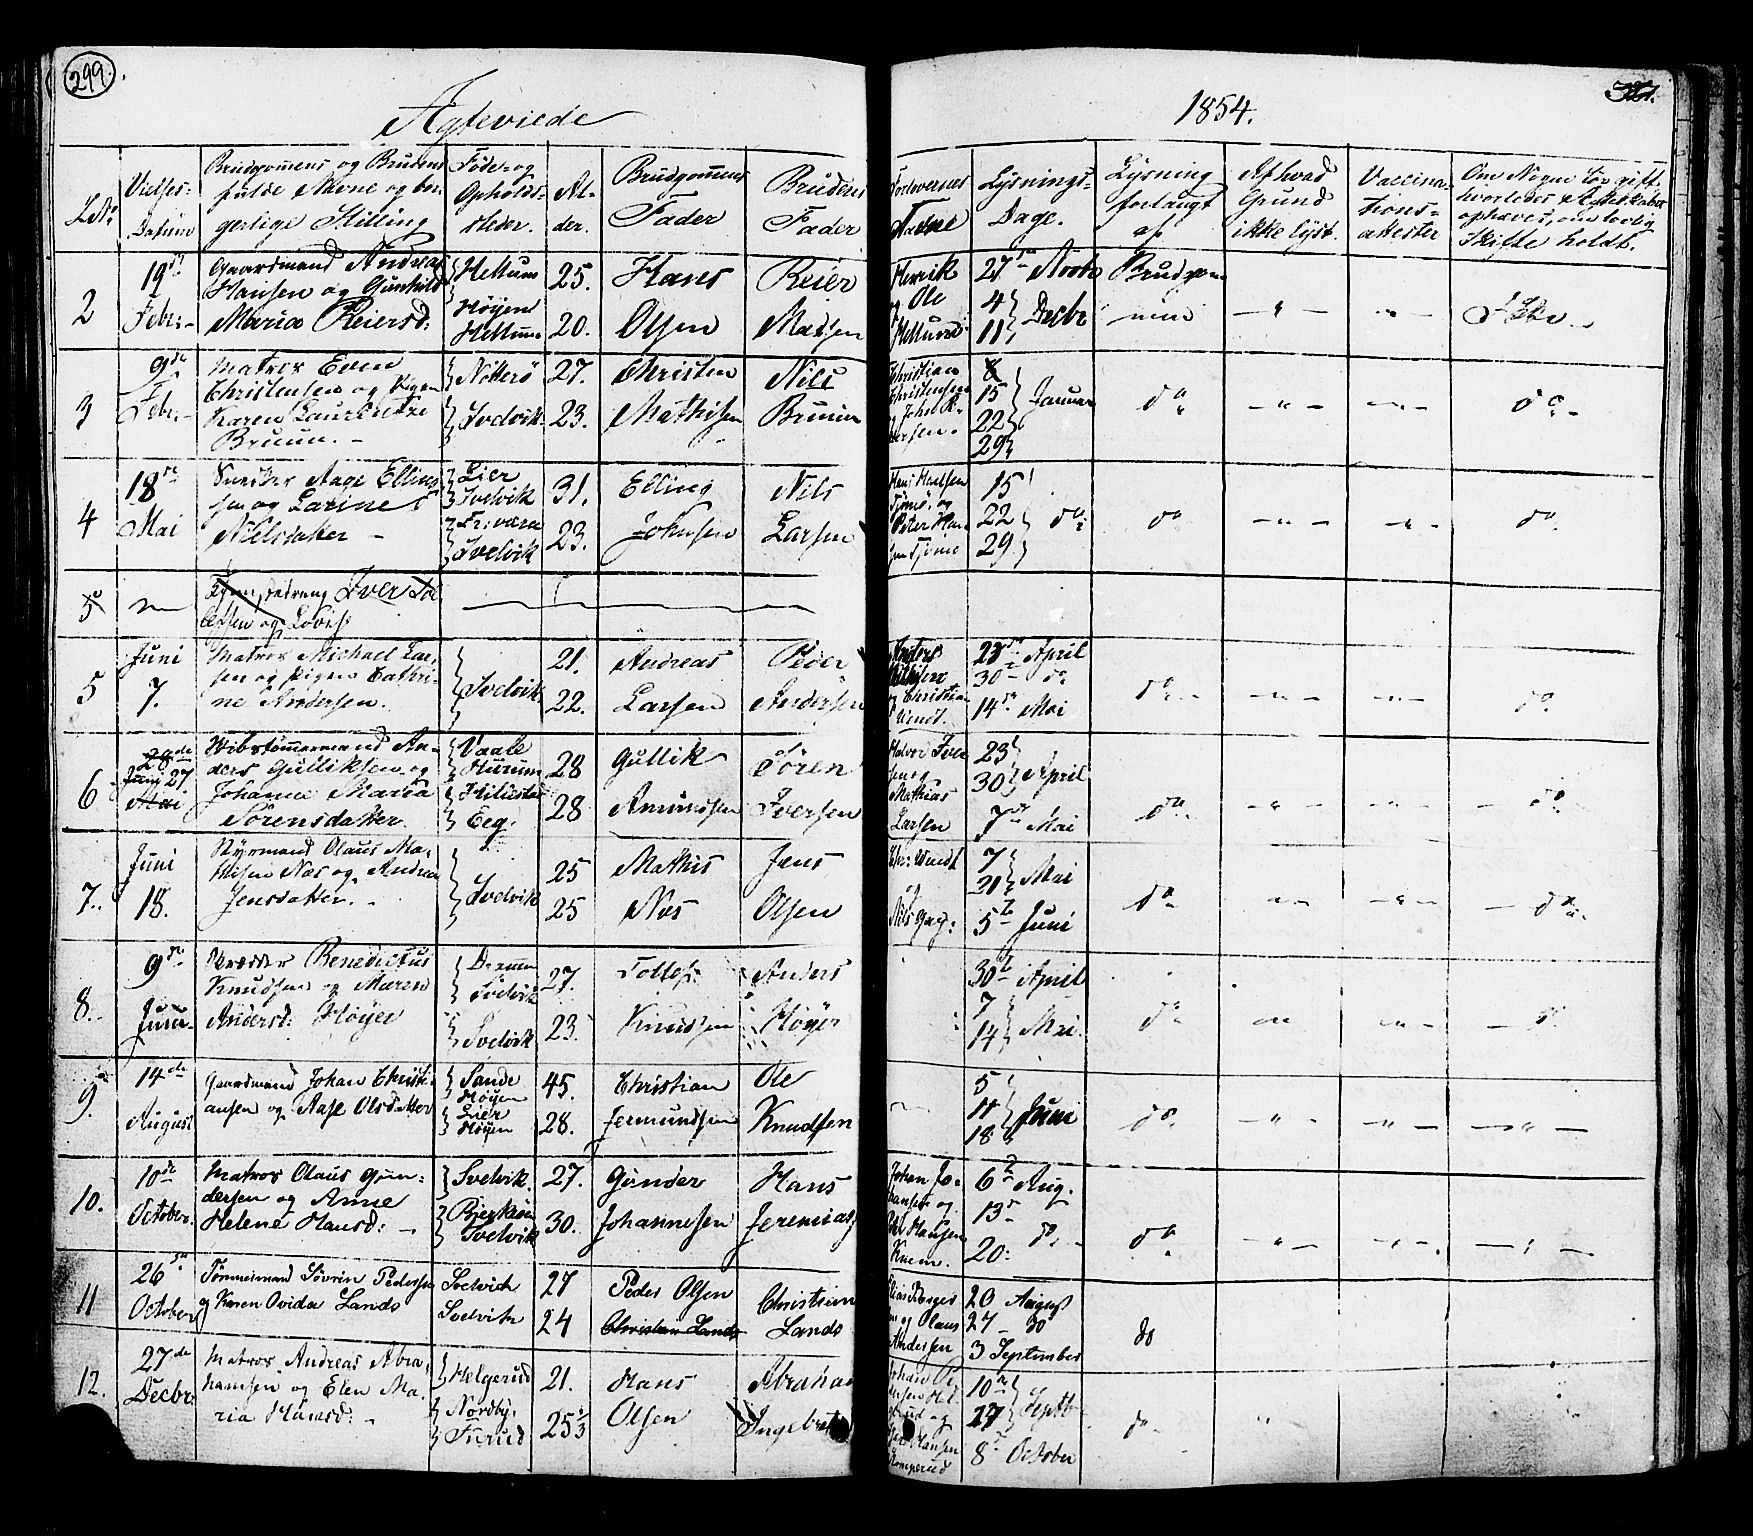 299.
Ægteviede
1854.
321.
LNo
Vielses-
Datum
Brudgommens og Brudens
fulde Navne og bor
gerlige Stilling
Føde- og
Opholds-
steder.
Al-
der.
Brudgommens
Fader
Brudens
Fader
Forlovernes
Navne
Lysnings-
Dage.
Lysning
forlangt
af
Af hvad
Grund
ikke lyst.
Vaccina-
tions-
attester
Om Nogen før gift.
hvorledes Ægteskabet
ophævet, om lovlig
Skifte holdt.
2
19de
Febr:
Gaardmand Andreas
Hansen og Gunhild
Maria Reiersd:
Hellum
Høyen
Hellum
25.
20.
Hans
Olsen
Reier
Madsen
Henrik
og Ole
Hellum
27de Novbr
4
11
Decbr
Brudgom
men
3
9de
Febr.
Matros Even
Christensen og Pigen
Karen Laurentze
Bruun.
Nøtterø
Svelvik
27.
23.
Christen
Mathisen
Nils
Bruun
Christian
Christensen
8
15
22
29
Januar
do
do
4
18de
Mai
Aage Elling
sen og Larine
Nielsdatter
Lier
Svelvik
Svelvik
31.
23.
Elling
Johnsen
Nils
Larsen
Peter Han
sen Tjømø
15
22
29
do
do
do
5
Iver
sen og Lovise
5
Juni
7.
Matros Michael Lar,
sen og Pigen Cathri-
ne Andersen.
Svelvik
21.
22.
Andreas
Larsen
Peder
Andersen
Anders
Christian
Wendt.
23de April
30 do
14de Mai
do
do
6
28de
Juni 27
Mai
Skibstømmermand An-
ders Gulliksen og
Johanne Maria
Sørensdatter
Vaale
Hurum
Eeg.
28
28
Gullik
Amundsen
Søren
Iversen
Halvor Iver
sen og
Mathias
Larsen
23
30
April
7de Mai
do
do
7.
Juni
18.
Styrmand Olaus Ma-
thisen Næs og Andrea
Jensdatter.
Svelvik
25
25
Mathis
Næs
Jens
Olsen
Chr: Wendt
og
Nils
7
21
Mai
5te Juni
do
do
8.
9de
Juni
Skrædder Benedictus
Knudsen og Maren
Andersd: Høyer
Drammen
Svelvik
Svelvik
27.
23.
Tollef
Knudsen
Anders
Høyer
30te April
7
14
Mai.
do
9.
14de
August
Gaardmand Johan Christi-
ansen og Aase Olsdatter
Sande
Høyen
Lier
Høyen
45.
28.
Christian
Jermundsen
Ole
Knudsen
5
11
18
Juni
do
10.
10de
October.
Matros Olaus Gun-
dersen og Anne
Helene Hansd:
Svelvik
Svelvik
27.
30.
Gunder
Johannesen
Hans
Jeremias
Johan Jo-
hansen og
Hansen
6te Aug.
13de
20.
do
do
11
26de
October
Tømmermand Søvrin Pedersen
og Karen Ovida Lands
Svelvich
Svelvik
27
24
Peder Olsen
Christian Lands
Christian
Lands
og Olaus
Andersen
20 August
27 do
3 September
do
12.
27de
Decbr.
Matros Andreas Abra,
hamsen og Elen Ma-
ria Hansd:
Helgerud
Nordby.
Furud
21.
25½
Hans
Olsen
Abraham
Ingebret
Johan Pe-
dersen
og
Hansen
10de
17
Septb
8de October
do